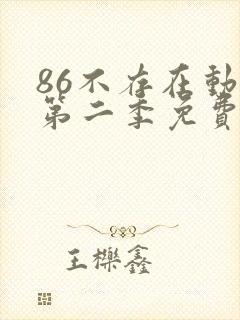 86不存在動
第二季免費
王櫟鑫